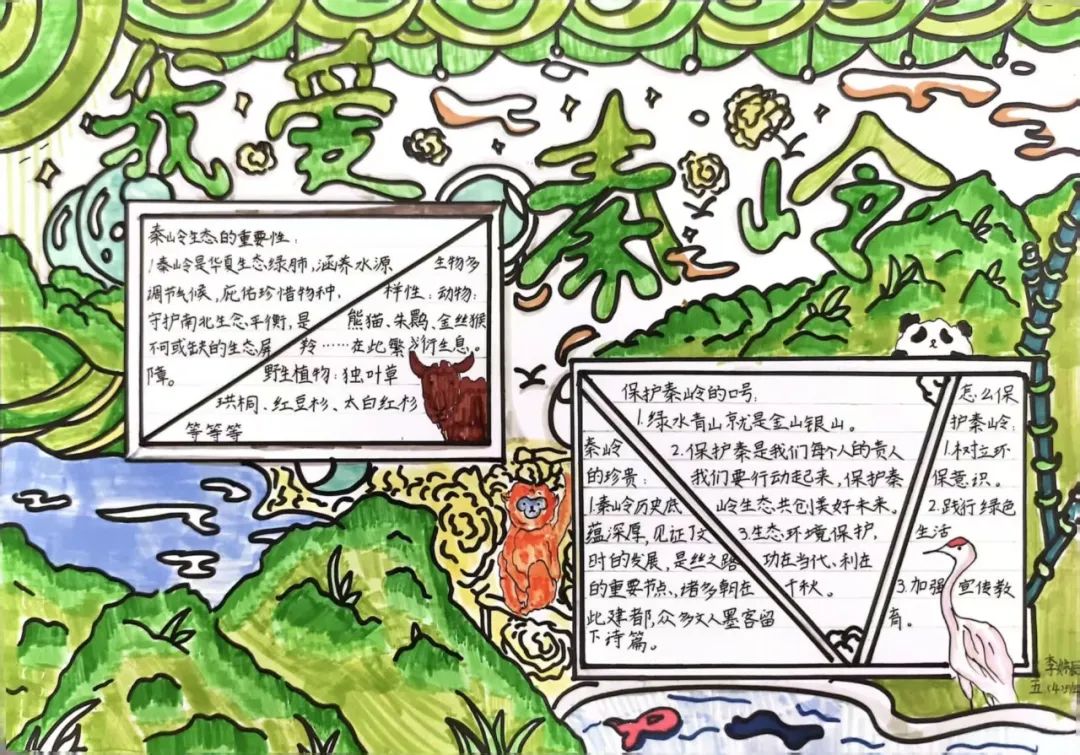 我爱秦岭
秦岭生态的重要性:
1秦岭是华夏生态绿肺,涵养水源
调节气候,庇佑珍惜物种,
守护南北生态平衡,是
不可或缺的生态屏
障。
生物多
样性:动物:
熊猫、朱鹮、金丝猴
羚……在此繁衍生息。
野生植物:独叶草
珙桐、红豆杉、太白红杉
等等等
秦岭
的珍贵:
1.秦岭历史底
蕴深厚,见证了文
时的发展,是丝之路
的重要节点、堵多朝在
此建都,众多文人墨客留
下诗篇。
保护秦岭的口号:
1.绿水青山就是金山银山。
2.保护秦是我们每个人的责人
我们要行动起来,保护秦
岭生态共创美好未来。
3.生态环境保护,
功在当代、利在
千秋。
怎么保
护秦岭:
1.树立环
保意识。
2.践行绿色
生活
3.加强宣传教
育。